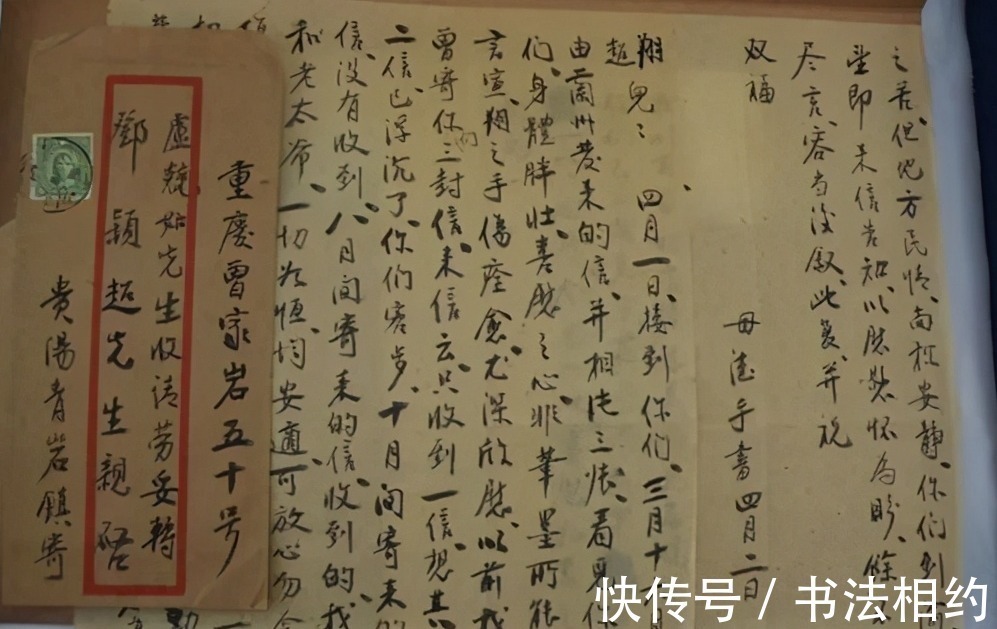 重慶曾家岩五十号
盧兢如先生收請劳妥轉
鄧穎超先生親啓
貴陽青岩鎮寄
之苦、但地方民情、尚極安靜、你们到
望即来信告知、以慰懸怀為盼、餘不
尽言、容当後叙、此复、并祝
双福
母澄手書四月二日
翔
超
兒：四月一日、接到你们、三月十
由蘭州發来的信、并相片三张、看見你
们、身體胖壮、喜慰之心、非筆墨所能
言宣、翔之手傷痊愈、尤深欣慰、以前我
曾寄你们三封信、来信云、只收到一信、想其
二信、已浮沉了、你们客岁、十月间寄来的
信、没有收到、八月间寄来的信、收到的、我
和老太爷、一切如恒、均安適、可放心勿念
快传号 / 书法相约